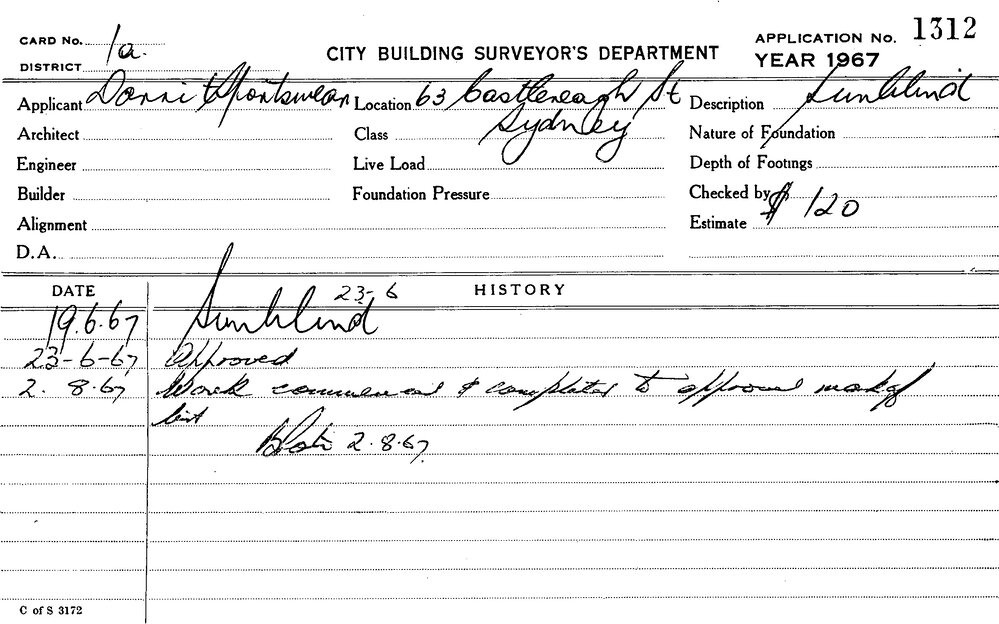 CARD No. 1a.
CITY BUILDING SURVEYOR'S DEPARTMENT
APPLICATION No. 1312
DISTRICT
YEAR 1967
Applicant Sportswear Location 63 Castlereagh St Description Sunblind
Architect
Class Sydney
Nature of Foundation
Engineer
Live Load
Depth of Footings
Builder
Foundation Pressure
Checked by
Alignment
Estimate $ 120
D.A.
DATE
HISTORY
23-6
19.6.67 Sunblind
23-6-67 Approved
2. 8.67 Work commenced & completed to approval
2.8.67
C of S 3172